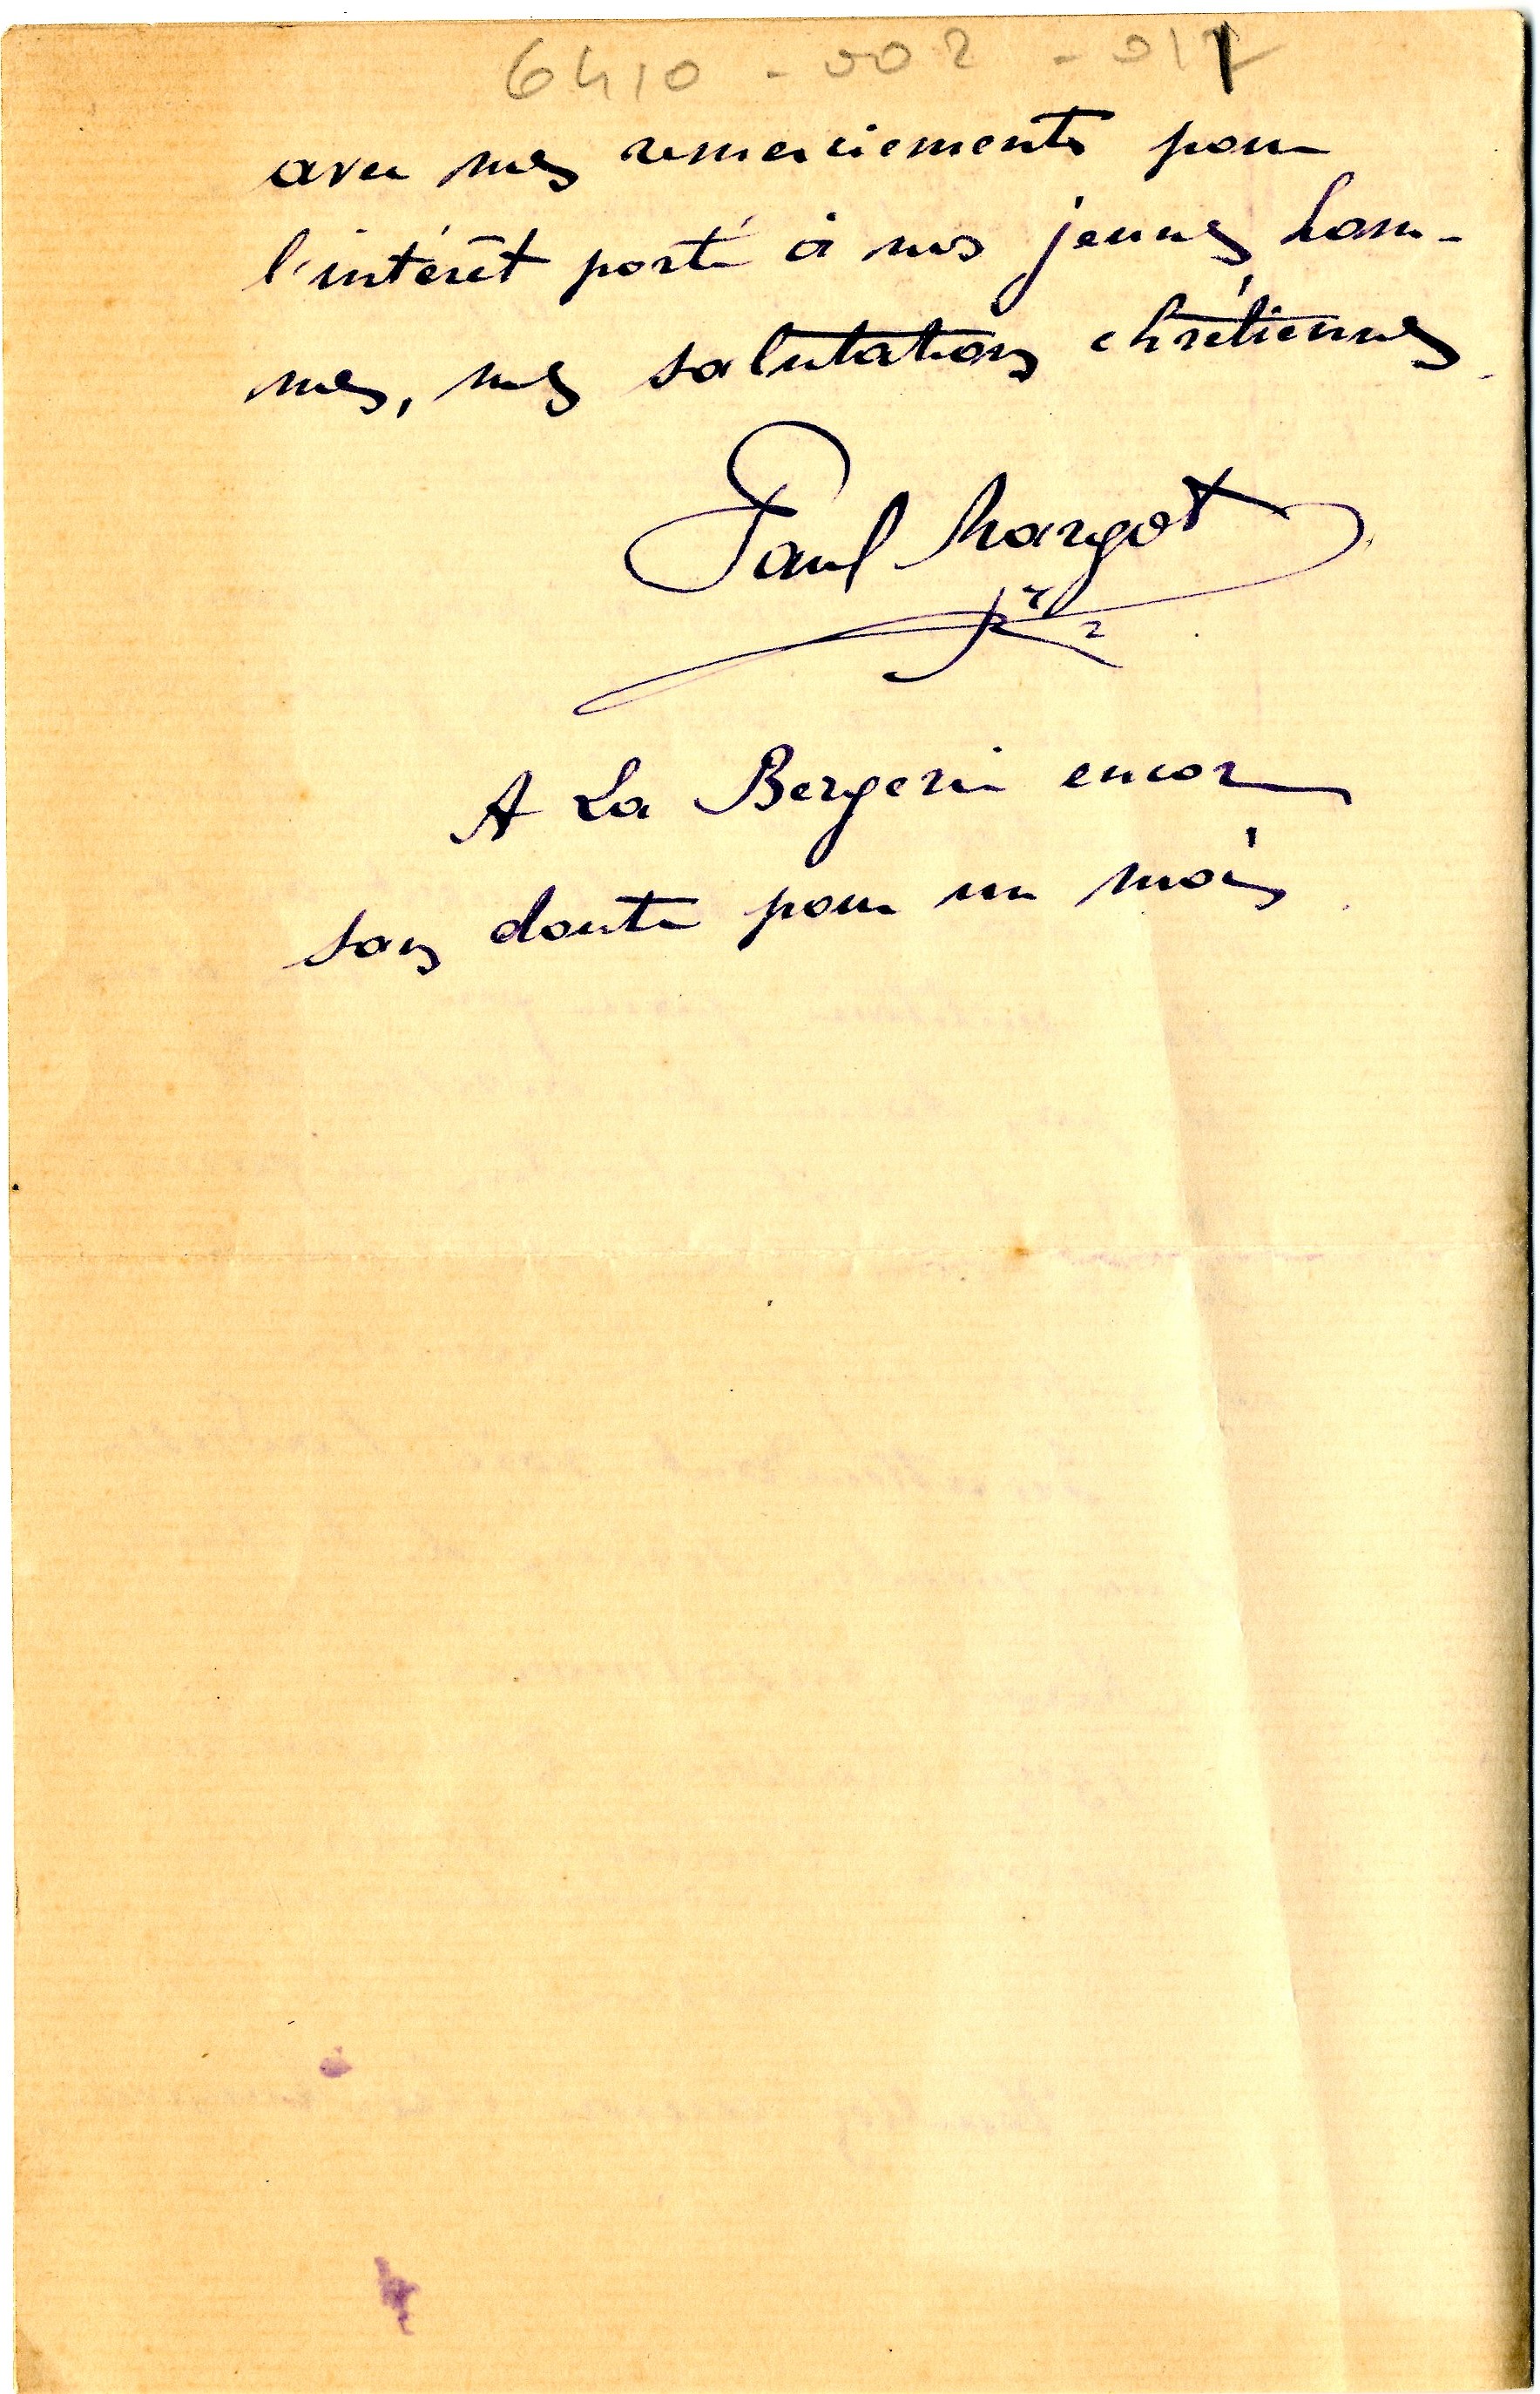 6410 - 002 - 017
avec mes remerciements pour
l'intérêt porté à nos jeunes hom-
mes, mes salutations chrétiennes.
Paul Margot
A La Bergerie encore
sans doute pour un mois.